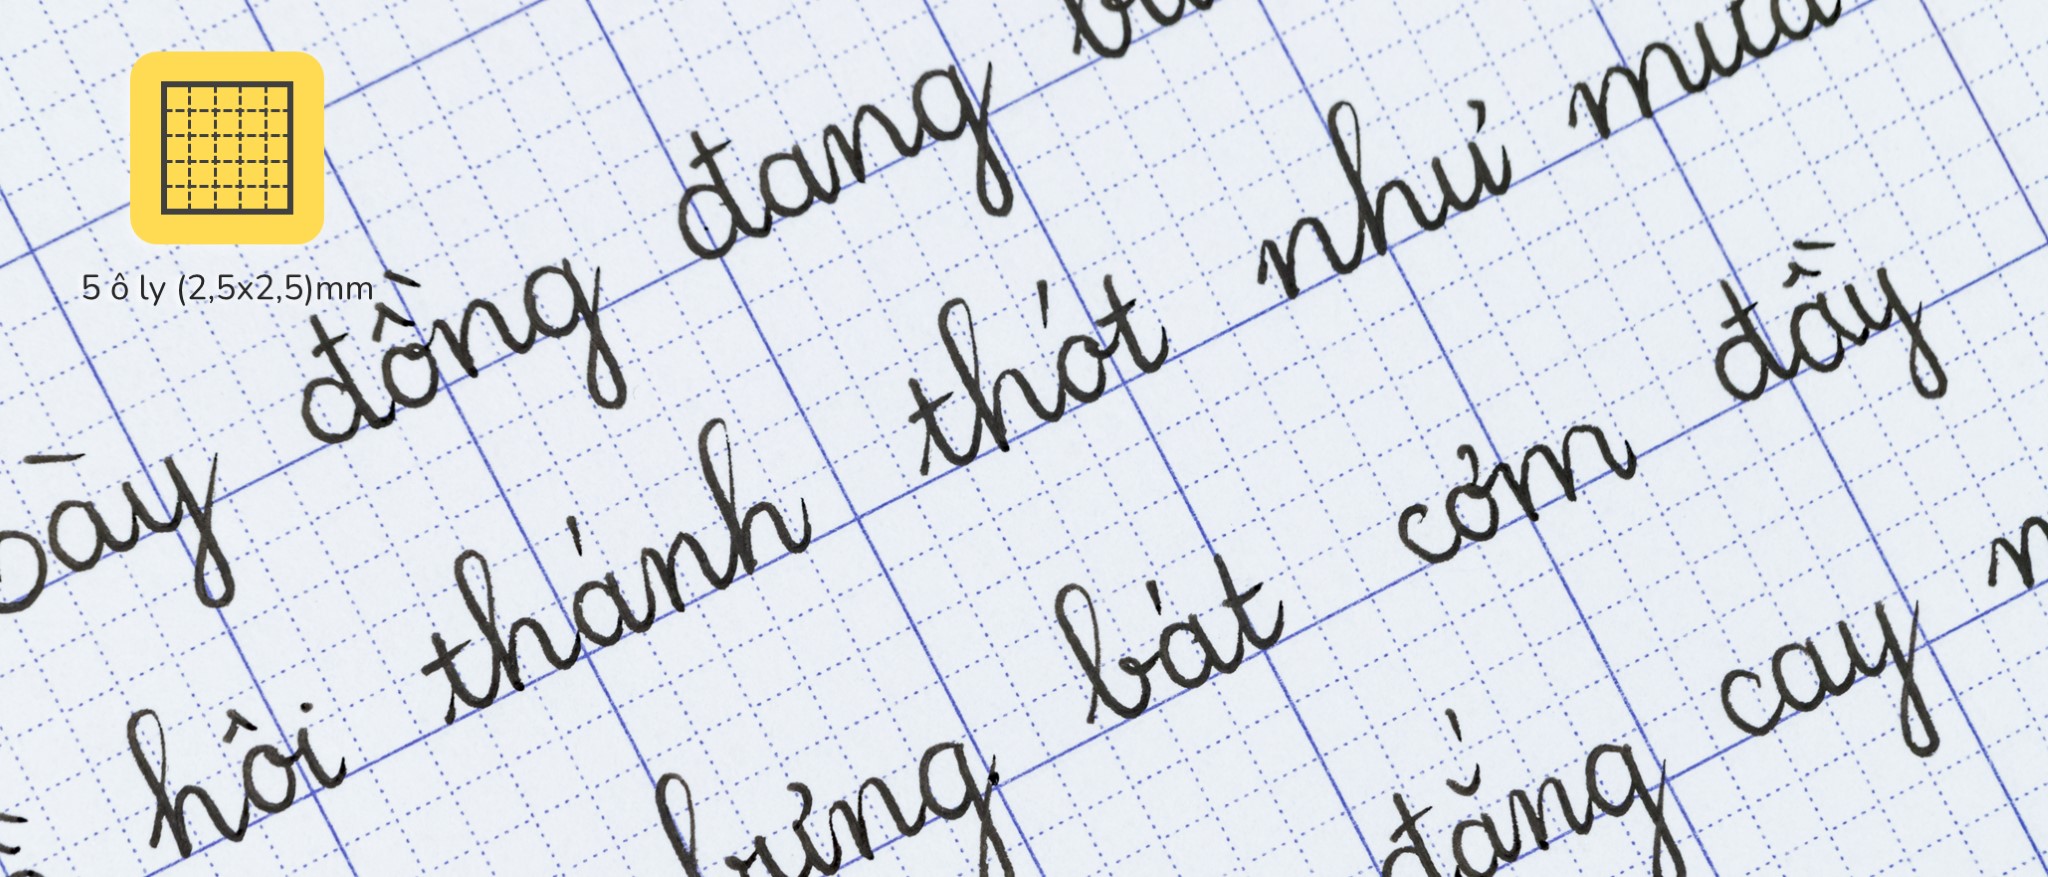 5 ô ly (2,5x2,5)mm
đồng đang
hôi thánh thót như mưa
bưng bát cơm đầy
đắng cay